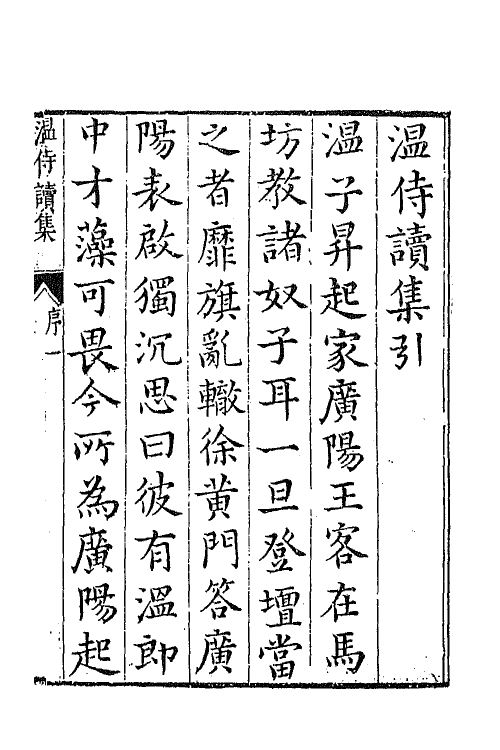 溫侍讀集引
溫子昇起家廣陽王客在馬
坊教諸奴子耳一旦登壇當
之者靡旗亂轍徐黃門答廣
陽表啟獨沉思曰彼有溫郎
中才藻可畏今所為廣陽起
溫侍讀集
序一